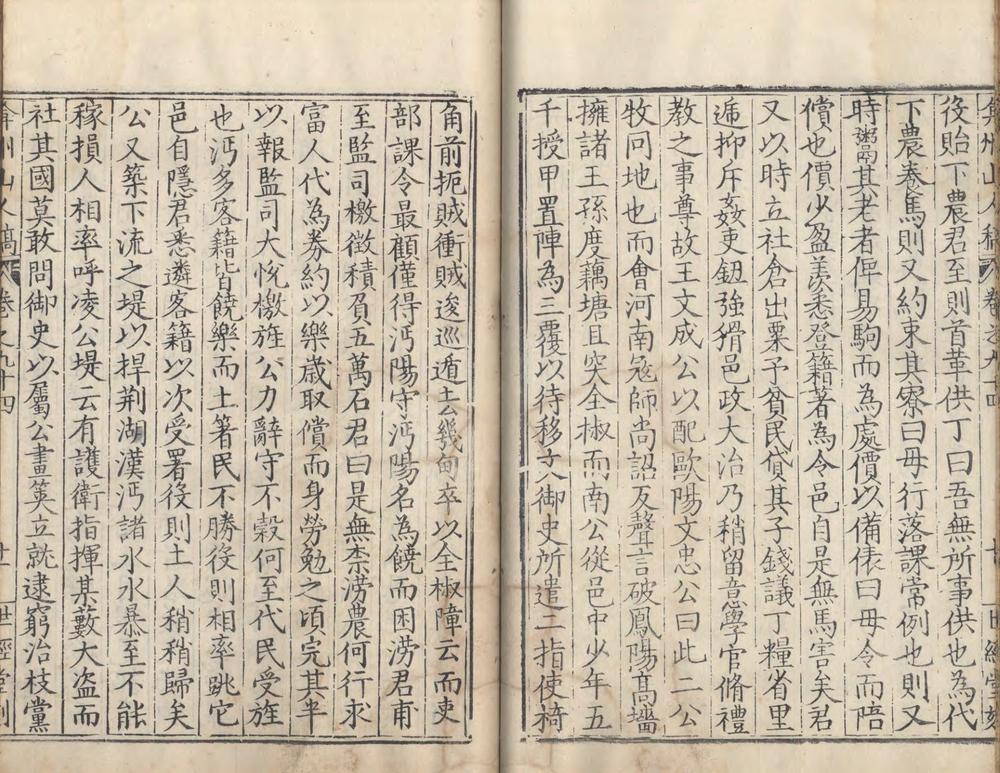 弇州山人稿 卷之九十四 十 世經堂刻
後貽下農君至則首革供丁曰吾無所事供也為代
下農養馬則又約束其寮曰毋行落課常例也則又
時鬻其老者俾易駒而為處價以備俵曰毋令而陪
償也價少盈羡悉登籍著為令邑自是無馬害矣君
又以時立社倉出粟予貧民貸其子錢議丁糧省里
逓抑斥姦吏鈕強猾邑政大治乃稍留意學官脩禮
教之事尊故王文成公以配歐陽文忠公曰此二公
牧同地也而會河南冦師尚詔反聲言破鳳陽髙墻
擁諸王孫度藕塘且突全椒而南公從邑中少年五
千授甲置陣為三覆以待移文御史所遣二指使掎
角前扼賊衝賊逡巡遁去幾旬卒以全椒障云而吏
部課令最顧僅得沔陽守沔陽名為饒而困澇君甫
至監司檄徵積負五萬石君曰是無柰澇農何行求
富人代為券約以樂歳取償而身勞勉之頃完其半
以報監司大悅檄旌公力辭守不榖何至代民受旌
也沔多客籍皆饒樂而土著民不勝役則相率跳它
邑自隱君悉遴客籍以次受署役則土人稍稍歸矣
公又築下流之堤以捍荆湖漢沔諸水水暴至不能
稼損人相率呼凌公堤云有護衛指揮某藪大盗而
社其國莫敢問御史以屬公畫筴立就逮窮治枝黨
弇州山人稿 卷之九十四 廿 世經堂刻